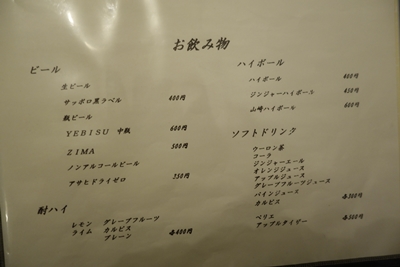 お飲み物
ビール
生ビール
サッポロ黒ラベル 400円
瓶ビール
YEBISU 中瓶 600円
ZIMA 500円
ノンアルコールビール
アサヒドライゼロ 350円
酎ハイ
レモン グレープフルーツ
ライム カルピス
プレーン 各400円
ハイボール
ハイボール 400円
ジンジャーハイボール 450円
山崎ハイボール 600円
ソフトドリンク
ウーロン茶
コーラ
ジンジャーエール
オレンジジュース
アップルジュース
グレープフルーツジュース
パインジュース
カルピス 各300円
ペリエ
アップルタイザー 各500円